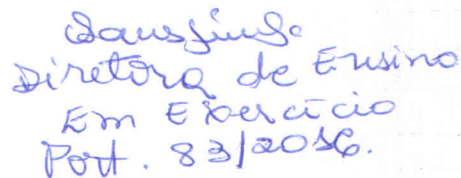 Diretora de Ensino
Em Exercício
Port. 83/2016.